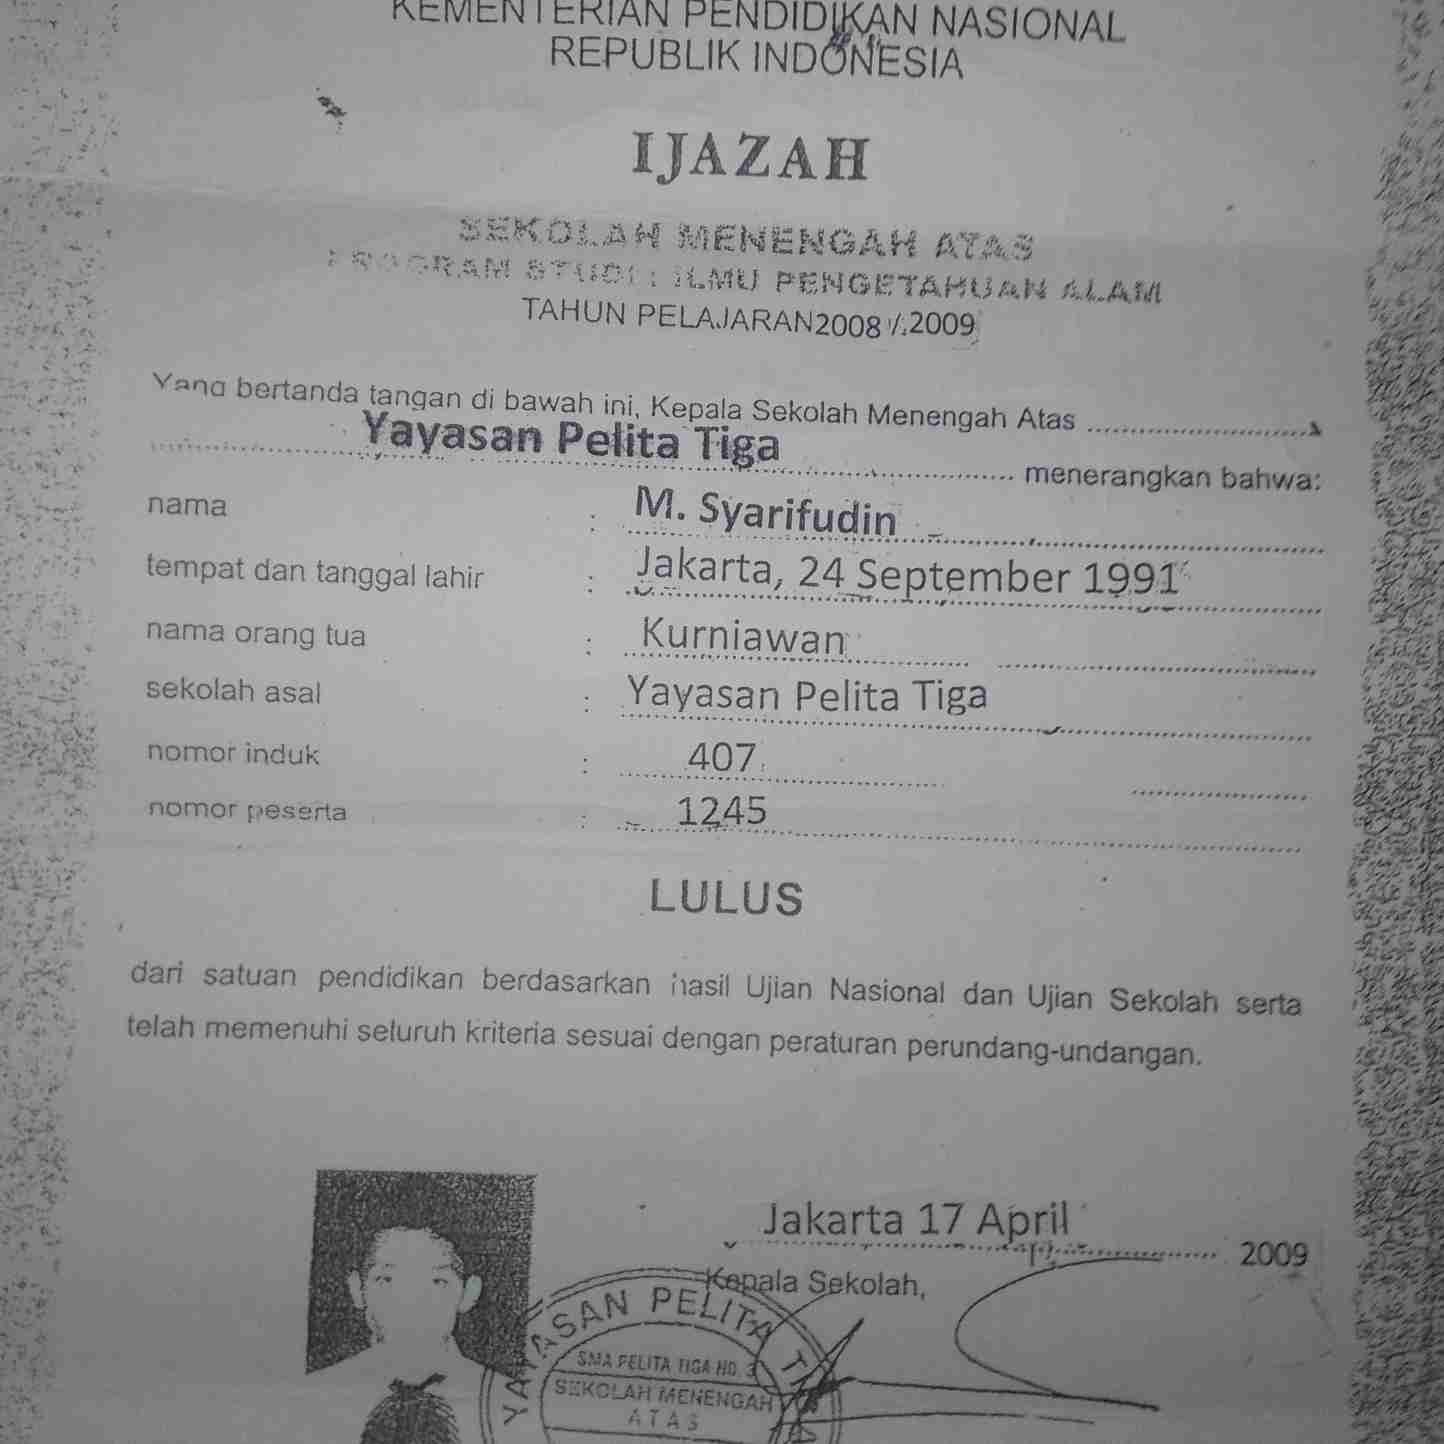 KEMENTERIAN PENDIDIKAN NASIONAL
REPUBLIK INDONESIA
IJAZAH
SEKOLAH MENENGAH ATAS
PROGRAM STUDI : ILMU PENGETAHUAN ALAM
TAHUN PELAJARAN 2008 / 2009
Yang bertanda tangan di bawah ini, Kepala Sekolah Menengah Atas
Yayasan Pelita Tiga menerangkan bahwa:
nama : M. Syarifudin
tempat dan tanggal lahir : Jakarta, 24 September 1991
nama orang tua : Kurniawan
sekolah asal : Yayasan Pelita Tiga
nomor induk : 407
nomor peserta : 1245
LULUS
dari satuan pendidikan berdasarkan hasil Ujian Nasional dan Ujian Sekolah serta
telah memenuhi seluruh kriteria sesuai dengan peraturan perundang-undangan.
Jakarta 17 April 2009
Kepala Sekolah,
YAYASAN PELITA TIGA
SMA PELITA TIGA NO. 3
SEKOLAH MENENGAH
ATAS